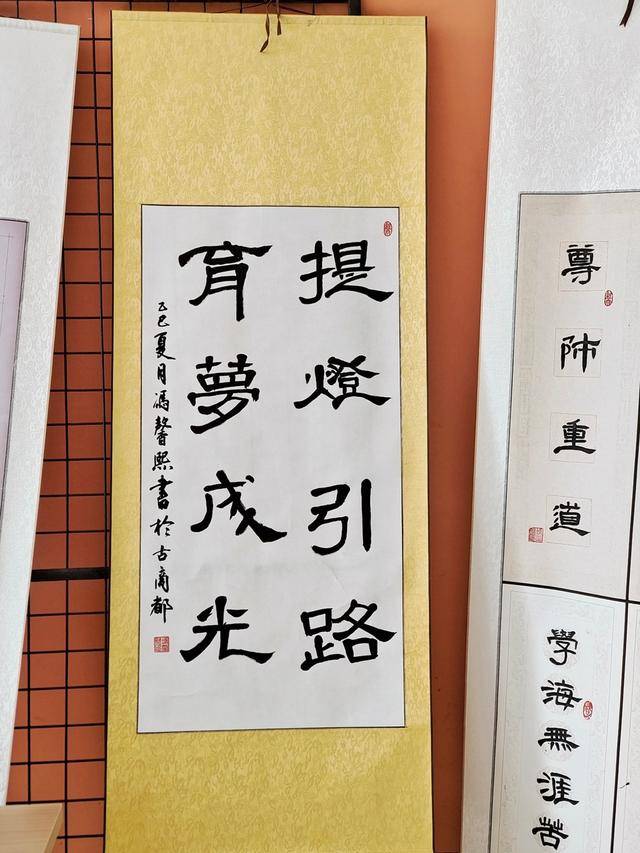 提燈引路
育夢成光
乙巳夏月馮馨熙書於古商都
尊師重道
學海無涯苦